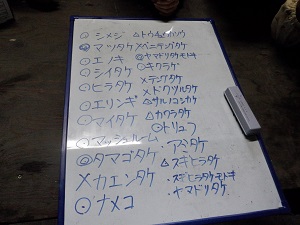 ⊙シメジ
◎マツタケ
⊙エノキ
⊙シイタケ
⊙ヒラタケ
⊙エリンギ
⊙マイタケ
⊙マッシュルーム
◎タマゴタケ
×カエンタケ
⊙ナメコ
×ベニテングタケ
◎ヤマドリタケモドキ
⊙キクラゲ
×テングタケ
×ドクツルタケ
△サルノコシカケ
△カワラタケ
⊙トリュフ
・アミタケ
△スギヒラタケ
・スギヒラタケモドキ
・ヤマドリタケ